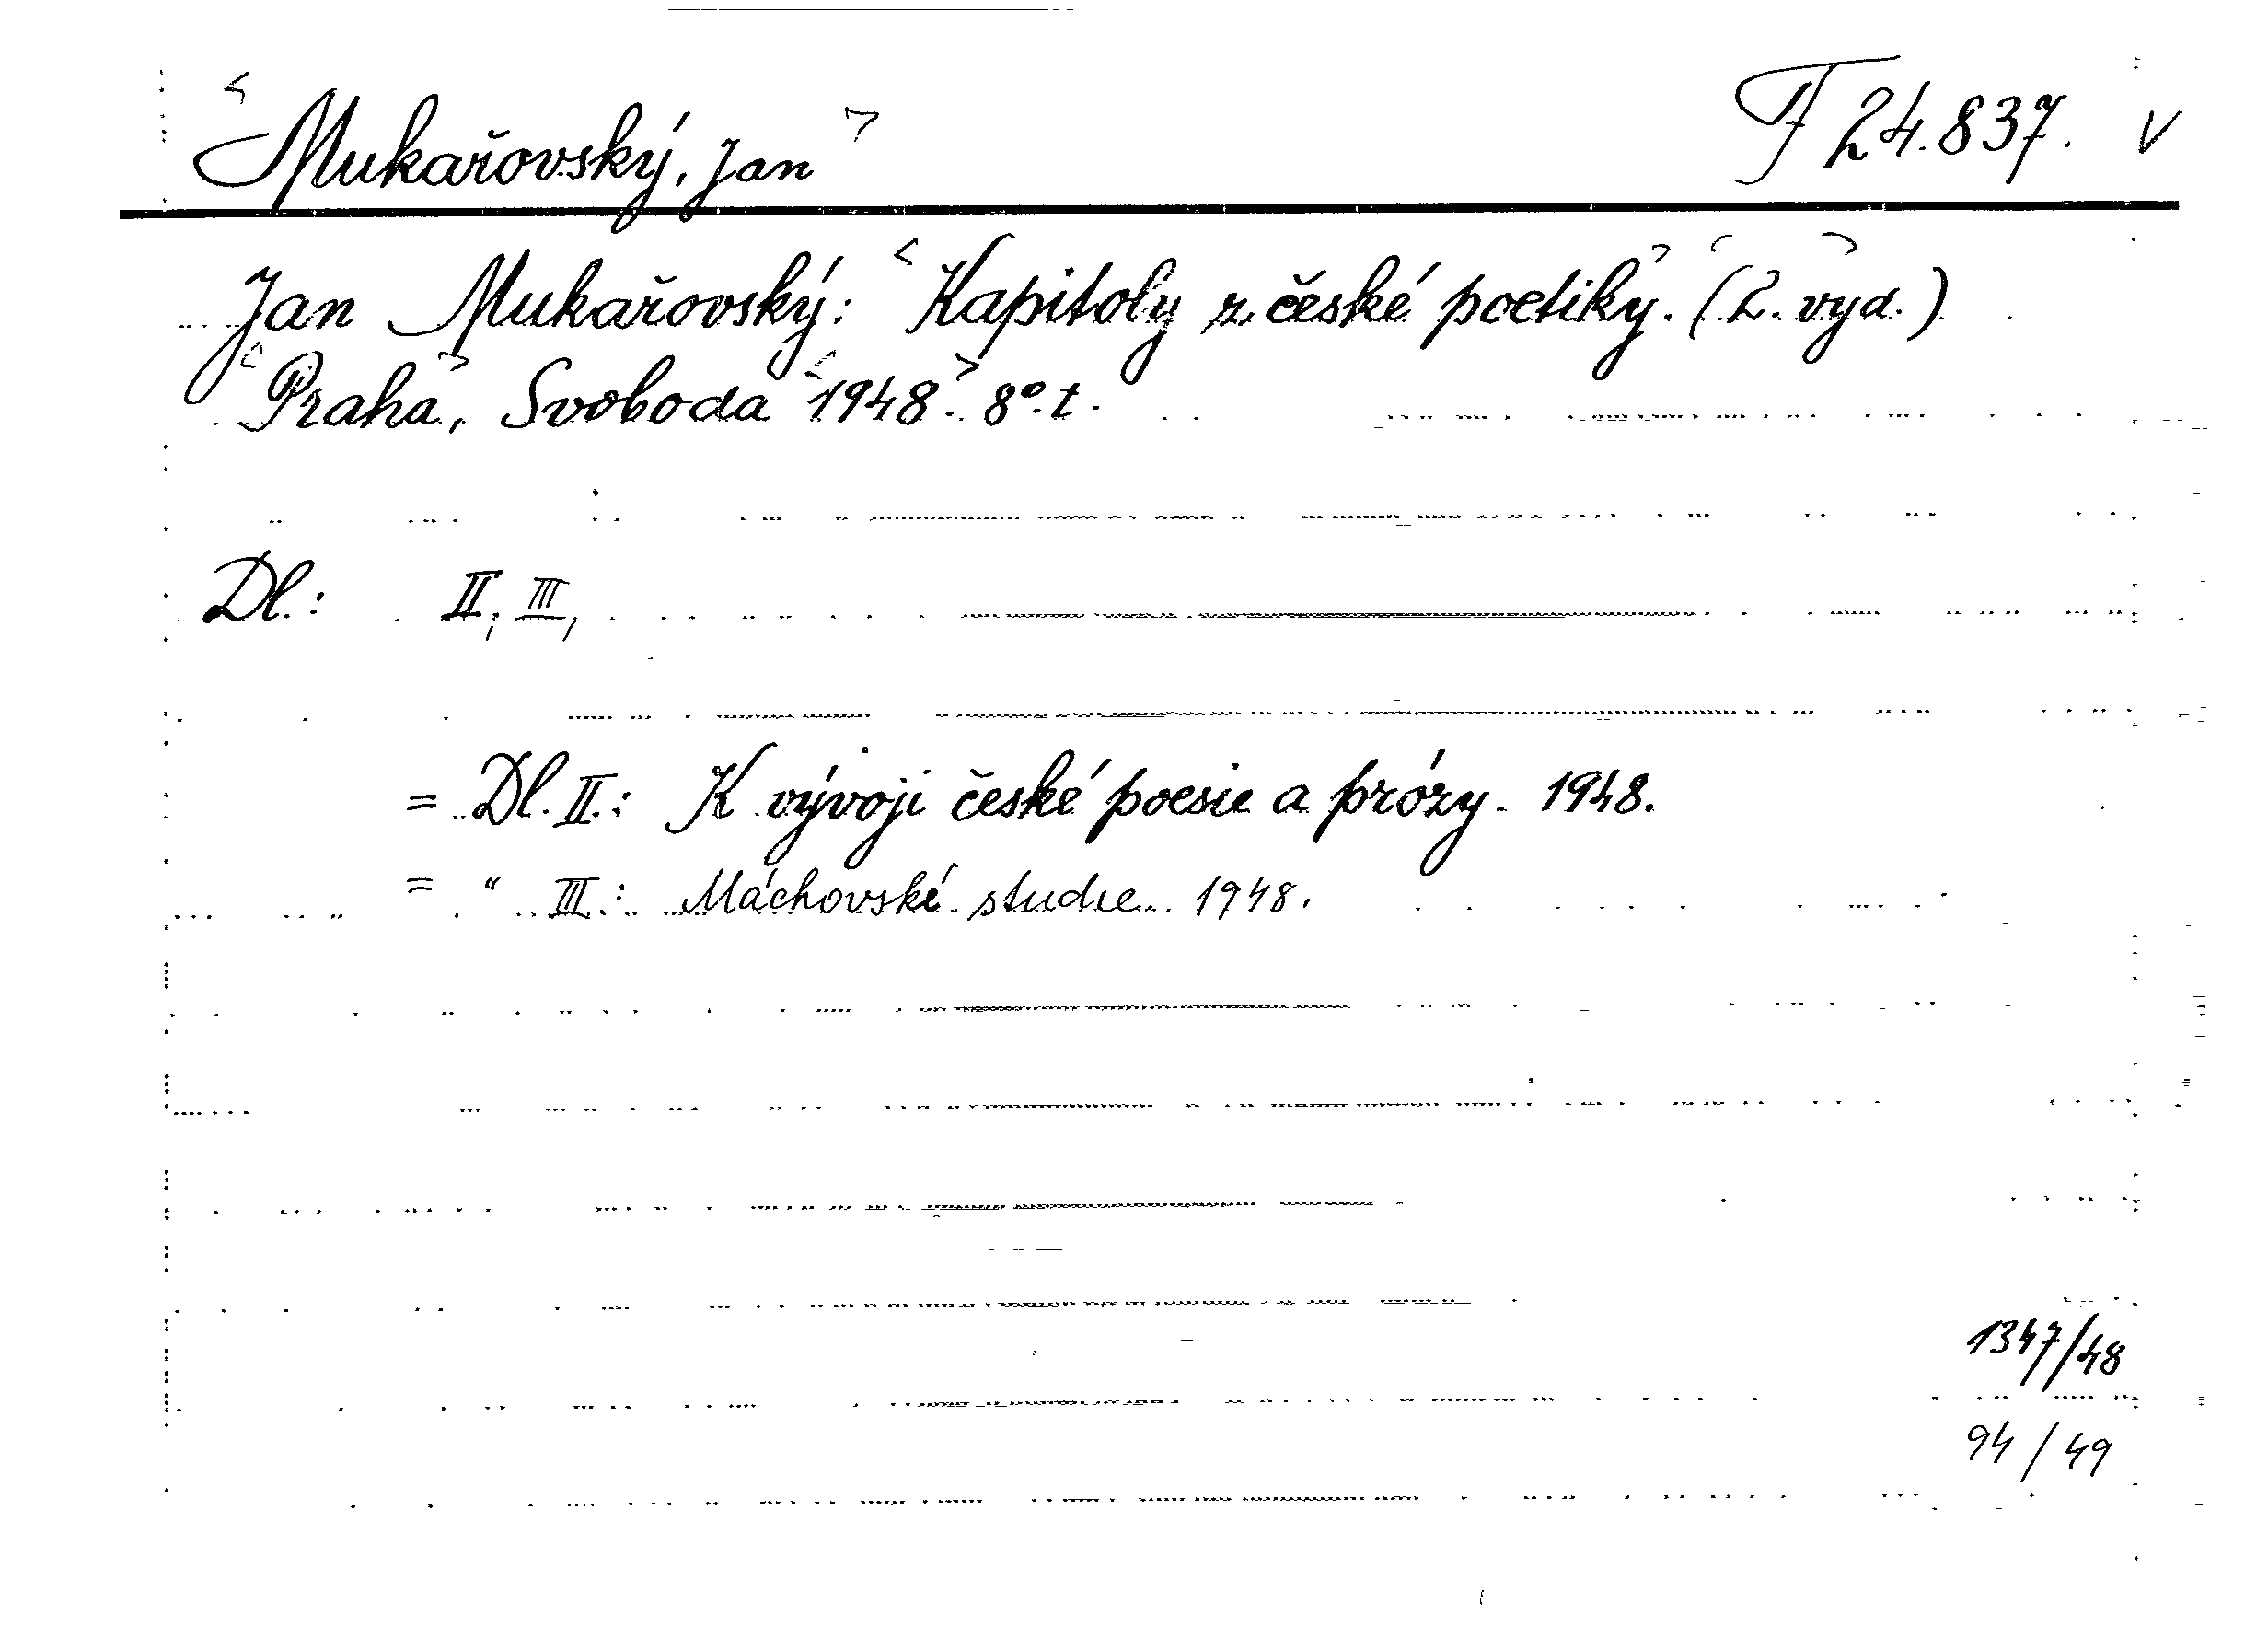 <Mukařovský, Jan> F 24.837. V
Jan Mukařovský: <Kapitoly z české poetiky>. (2. vyd.)
<Praha>, Svoboda <1948>. 8°. t.
Dl.: II, III,
= Dl. II.: K vývoji české poesie a prózy. 1948.
= " III.: Máchovské studie. 1948.
1347/48
94/49